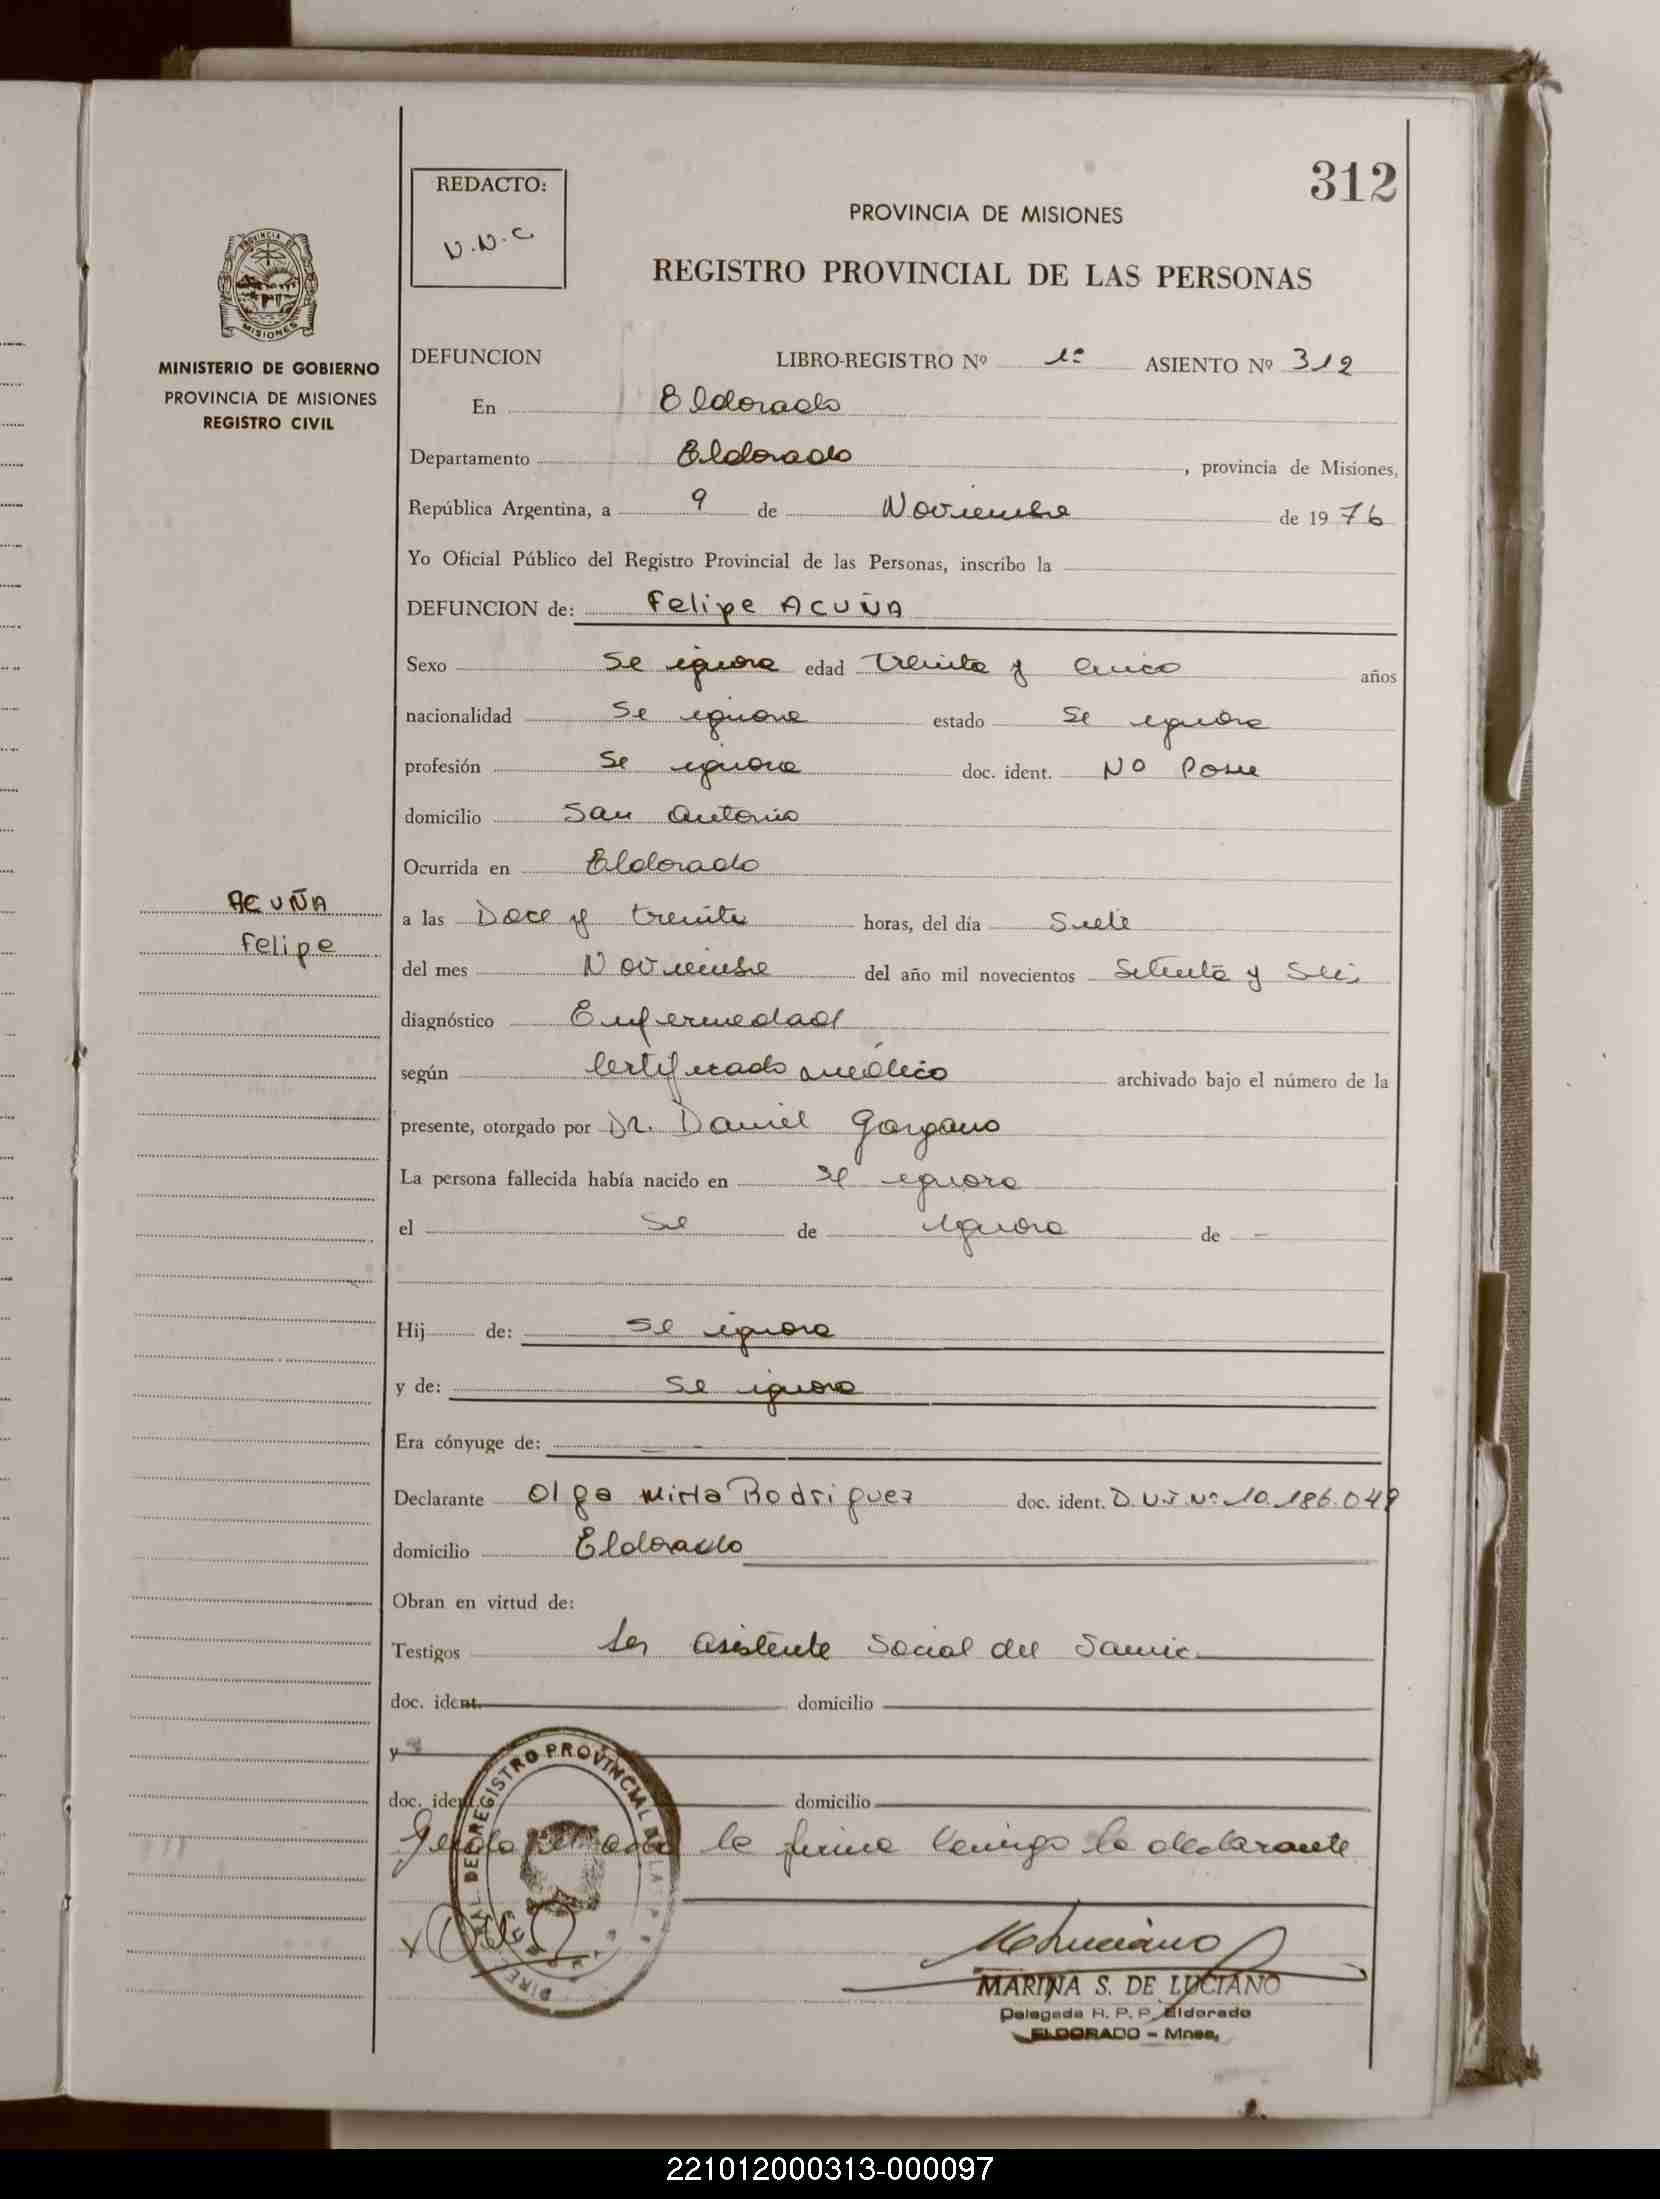 312
REDACTO:
V.N.C
PROVINCIA DE MISIONES
REGISTRO PROVINCIAL DE LAS PERSONAS
PROVINCIA DE
MISIONES
MINISTERIO DE GOBIERNO
PROVINCIA DE MISIONES
REGISTRO CIVIL
DEFUNCION LIBRO-REGISTRO Nº 1º ASIENTO Nº 312
En Eldorado
Departamento Eldorado, provincia de Misiones,
República Argentina, a 9 de Noviembre de 1976
Yo Oficial Público del Registro Provincial de las Personas, inscribo la
DEFUNCION de: Felipe ACUÑA
Sexo Se ignora edad treinta y cinco años
nacionalidad Se ignora estado Se ignora
profesión Se ignora doc. ident. No Posee
domicilio San Antonio
Ocurrida en Eldorado
ACUÑA
Felipe
a las Doce y treinta horas, del día Siete
del mes Noviembre del año mil novecientos Setenta y Seis
diagnóstico Enfermedad
según Certificado médico archivado bajo el número de la
presente, otorgado por Dr. Daniel Gorgano
La persona fallecida había nacido en se ignora
el se de ignora de -
Hij de: se ignora
y de: se ignora
Era cónyuge de: — -
Declarante Olga Mirta Rodriguez doc. ident. D.N.I. Nº 10.186.049
domicilio Eldorado
Obran en virtud de:
Testigos Ser asistente Social del Samic
doc. ident. domicilio
y
doc. ident. domicilio
la firma conmigo la declarante
REGISTRO PROVINCIAL DE LAS P
MARINA S. DE LUCIANO
Delegada R. P. P. Eldorado
ELDORADO - Mnes.
221012000313-000097